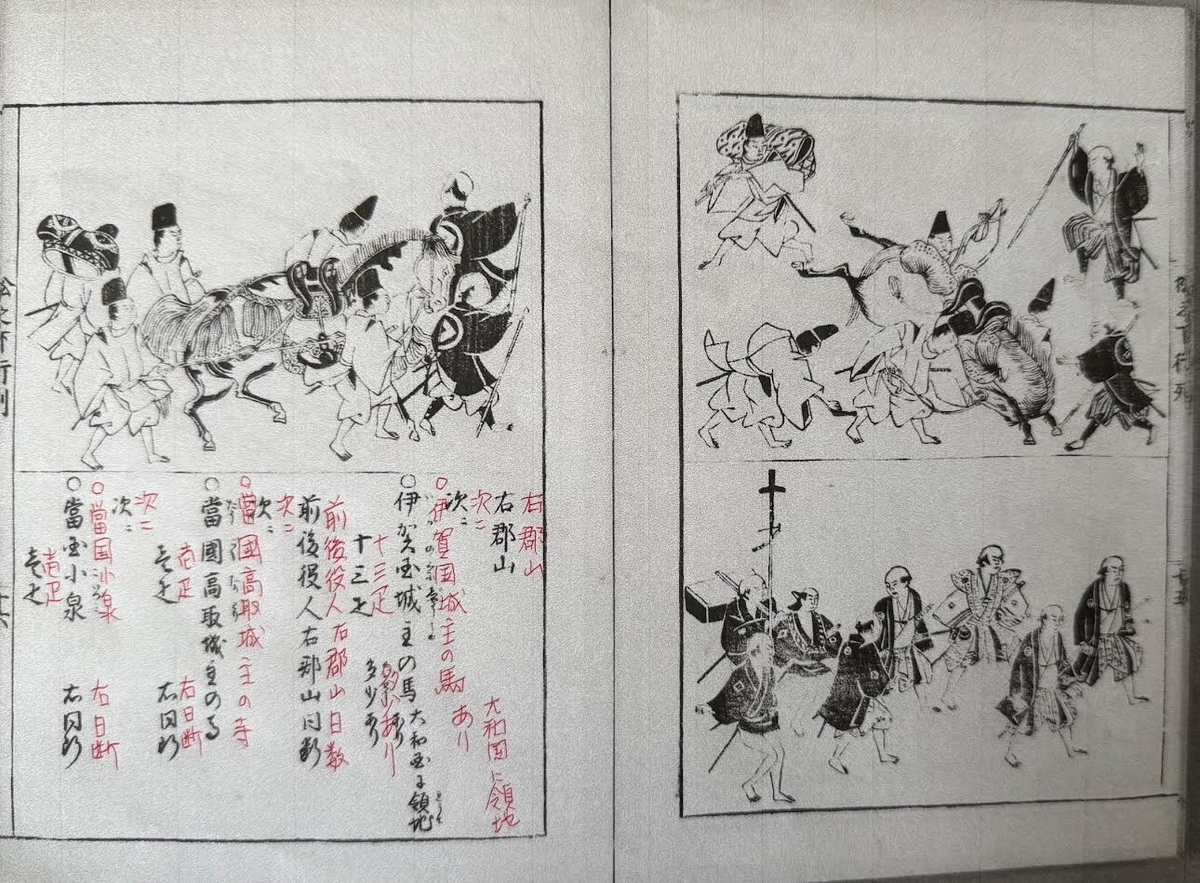 行列
十五
右郡山
右郡山
次ニ
次ニ
○伊賀国城主の馬
大和国に領地
あり
○伊賀国城主の馬
大和国に領地
あり
十三疋
多少あり
十三疋
多少あり
前後役人右郡山日数
前後役人右郡山同断
次ニ
次ニ
○當國高取城主の寺
○當國高取城主の馬
壱疋
右日断
壱疋
右同断
次ニ
次ニ
○當国小泉
○當国小泉
壱疋
右日断
壱疋
右同断